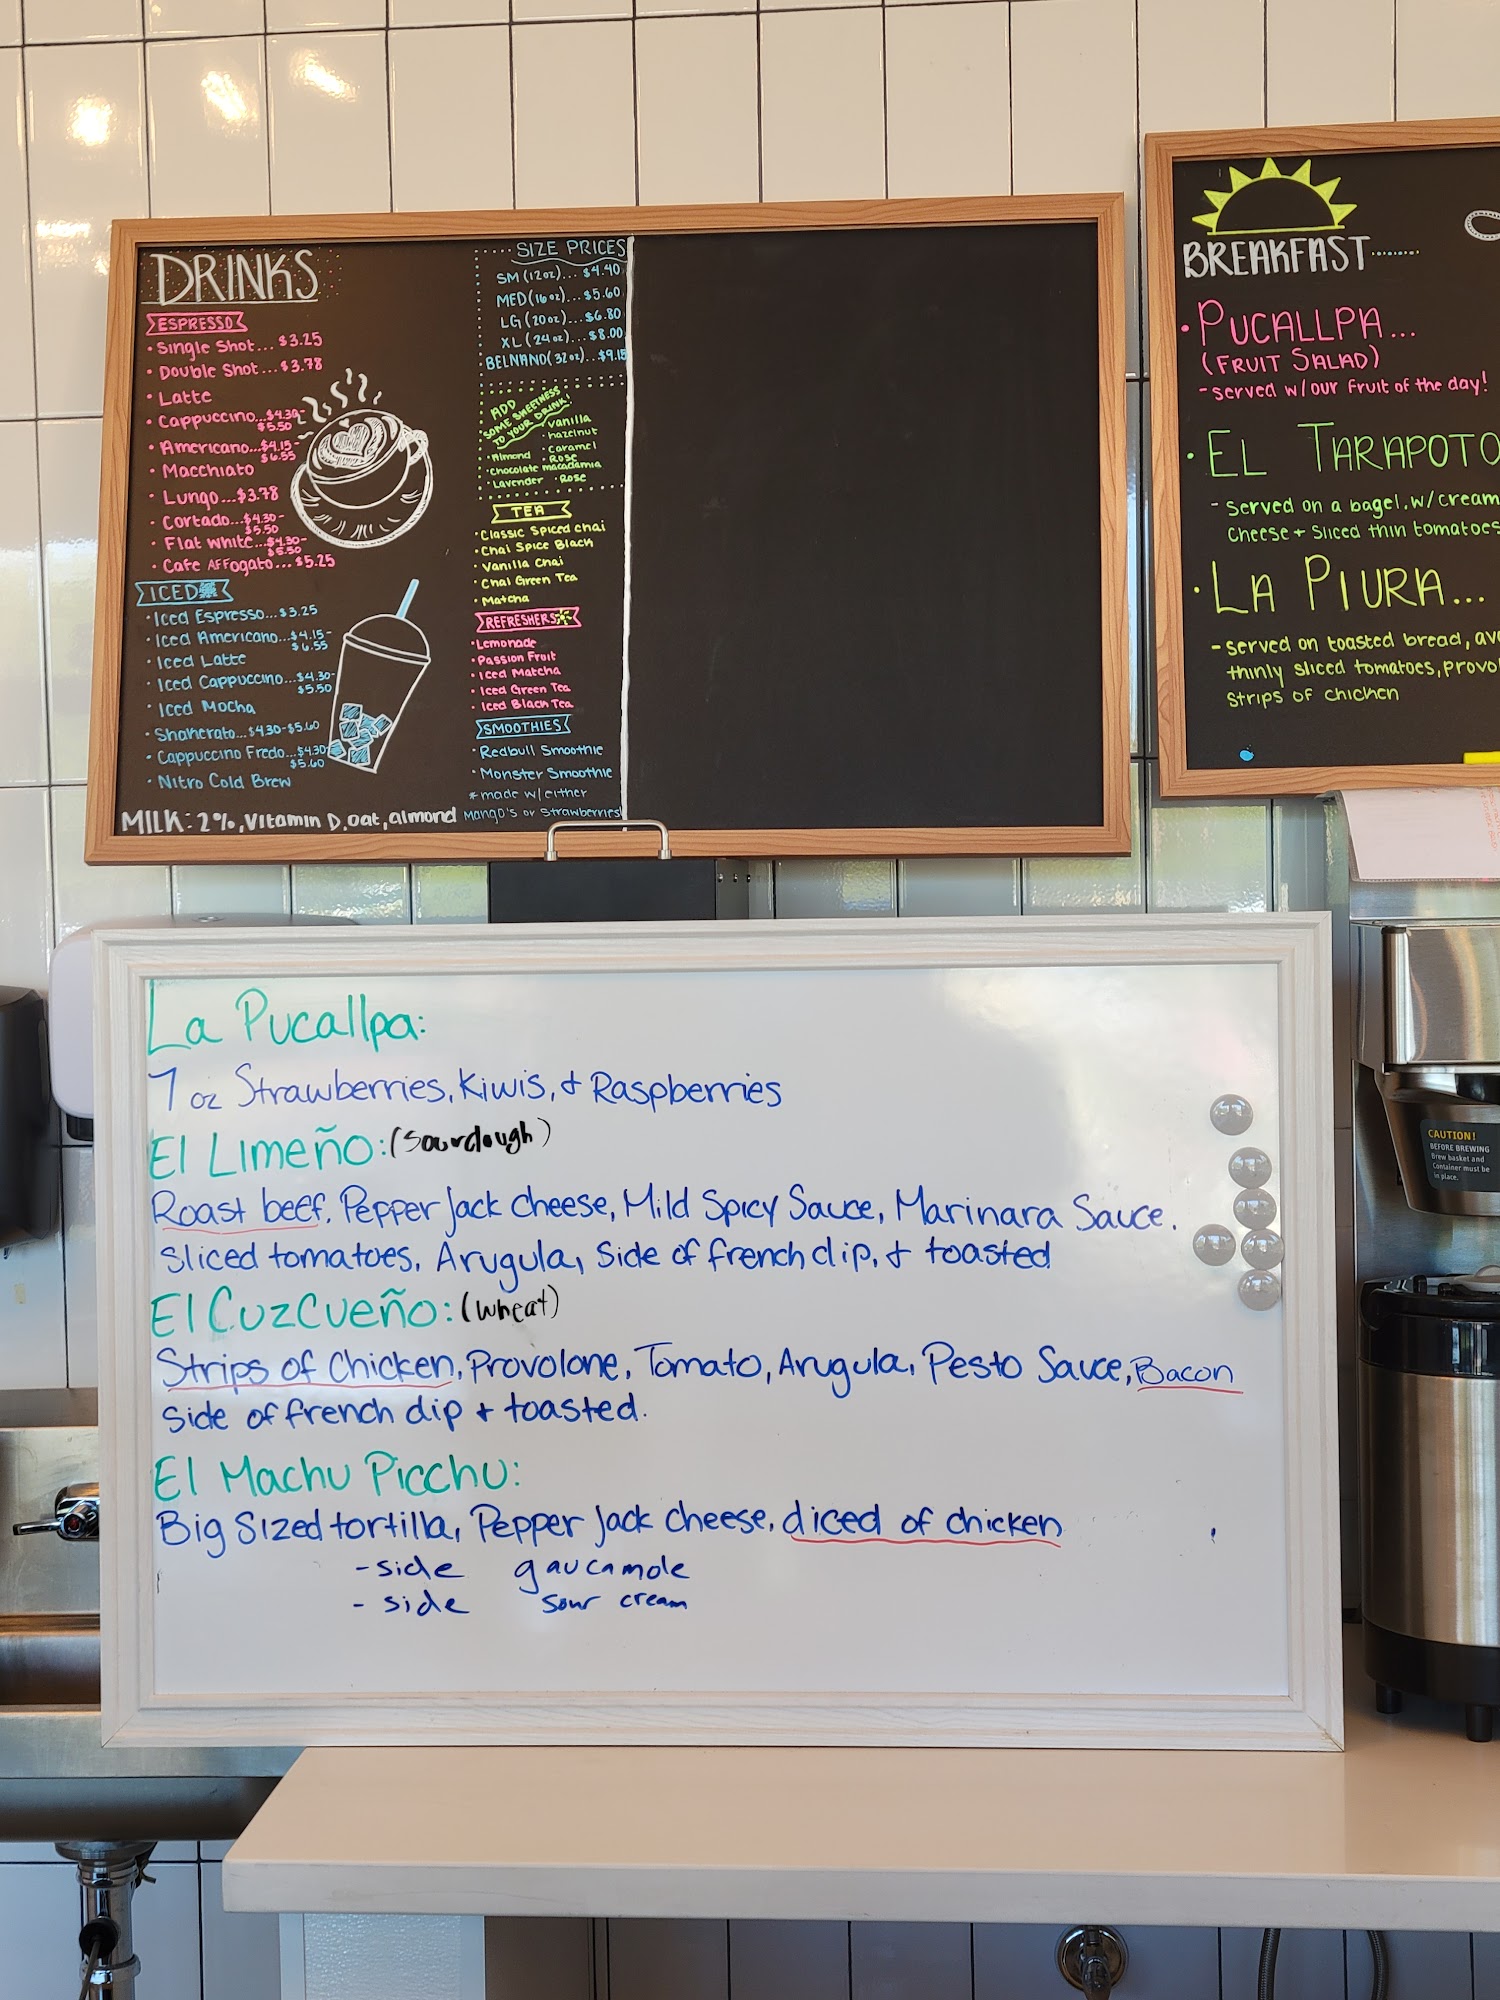 DRINKS
ESPRESSO
• Single Shot... $3.25
• Double Shot... $3.78
• Latte
• Cappuccino...$4.30-
$5.50
• Americano...$4.15-
$6.55
• Macchiato
• Lungo...$3.78
• Cortado...$4.30-
$5.50
• Flat white...$4.30-
$5.50
• Cafe Affogato...$5.25
ICED
• Iced Espresso...$3.25
• Iced Americano...$4.15-
$6.55
• Iced Latte
• Iced Cappuccino...$4.30-
$5.50
• Iced Mocha
• Shakerato...$4.30-$5.60
• Cappuccino Fredo...$4.30-
$5.60
• Nitro Cold Brew
MILK: 2%, Vitamin D, oat, almond
SIZE PRICES
SM (12oz)... $4.40
MED (16oz)...$5.60
LG (20oz)...$6.80
XL (24oz)...$8.00
BELNANO (32oz)...$9.15
ADD
SOME SWEETNESS
TO YOUR DRINK!
• vanilla
• hazelnut
• Almond • caramel
• Rose
• Chocolate macadamia
• Lavender • Rose
TEA
• Classic Spiced chai
• Chai Spice Black
• Vanilla Chai
• Chai Green Tea
• Matcha
REFRESHERS
• Lemonade
• Passion Fruit
• Iced Matcha
• Iced Green Tea
• Iced Black Tea
SMOOTHIES
• Redbull Smoothie
• Monster Smoothie
* made w/either
Mango's or Strawberries
BREAKFAST
• PUCALLPA...
(FRUIT SALAD)
- served w/our fruit of the day!
• EL TARAPOTO
- Served on a bagel, w/cream
cheese + sliced thin tomatoes
• LA PIURA...
- served on toasted bread,
thinly sliced tomatoes,
strips of chicken
La Pucallpa:
7 oz Strawberries, Kiwis, & Raspberries
El Limeño: (sourdough)
Roast beef, Pepper Jack cheese, Mild Spicy Sauce, Marinara Sauce.
Sliced tomatoes, Arugula, Side of french dip, & toasted
El Cuzcueño: (wheat)
Strips of Chicken, Provolone, Tomato, Arugula, Pesto Sauce, Bacon
Side of french dip & toasted.
El Machu Picchu:
Big Sized tortilla, Pepper Jack cheese, diced of chicken
- side gaucamole
- side sour cream
CAUTION!
BEFORE BREWING
Brew basket and
Container must be
in place.